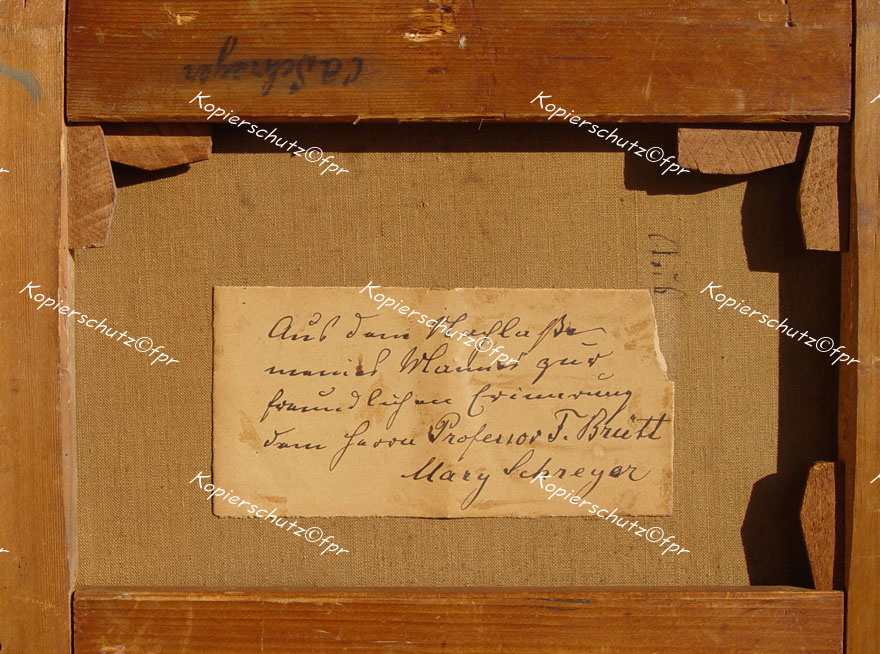 C A Schreyer
Kopierschutz©fpr
Kopierschutz©fpr
Kopierschutz©fpr
Kopierschutz©fpr
Kopierschutz©fpr
Aus dem Nachlaße
meines Mannes zur
freundlichen Erinnerung
dem Herrn Professor F. Brütt
Mary Schreyer
Kopierschutz©fpr
Kopierschutz©fpr